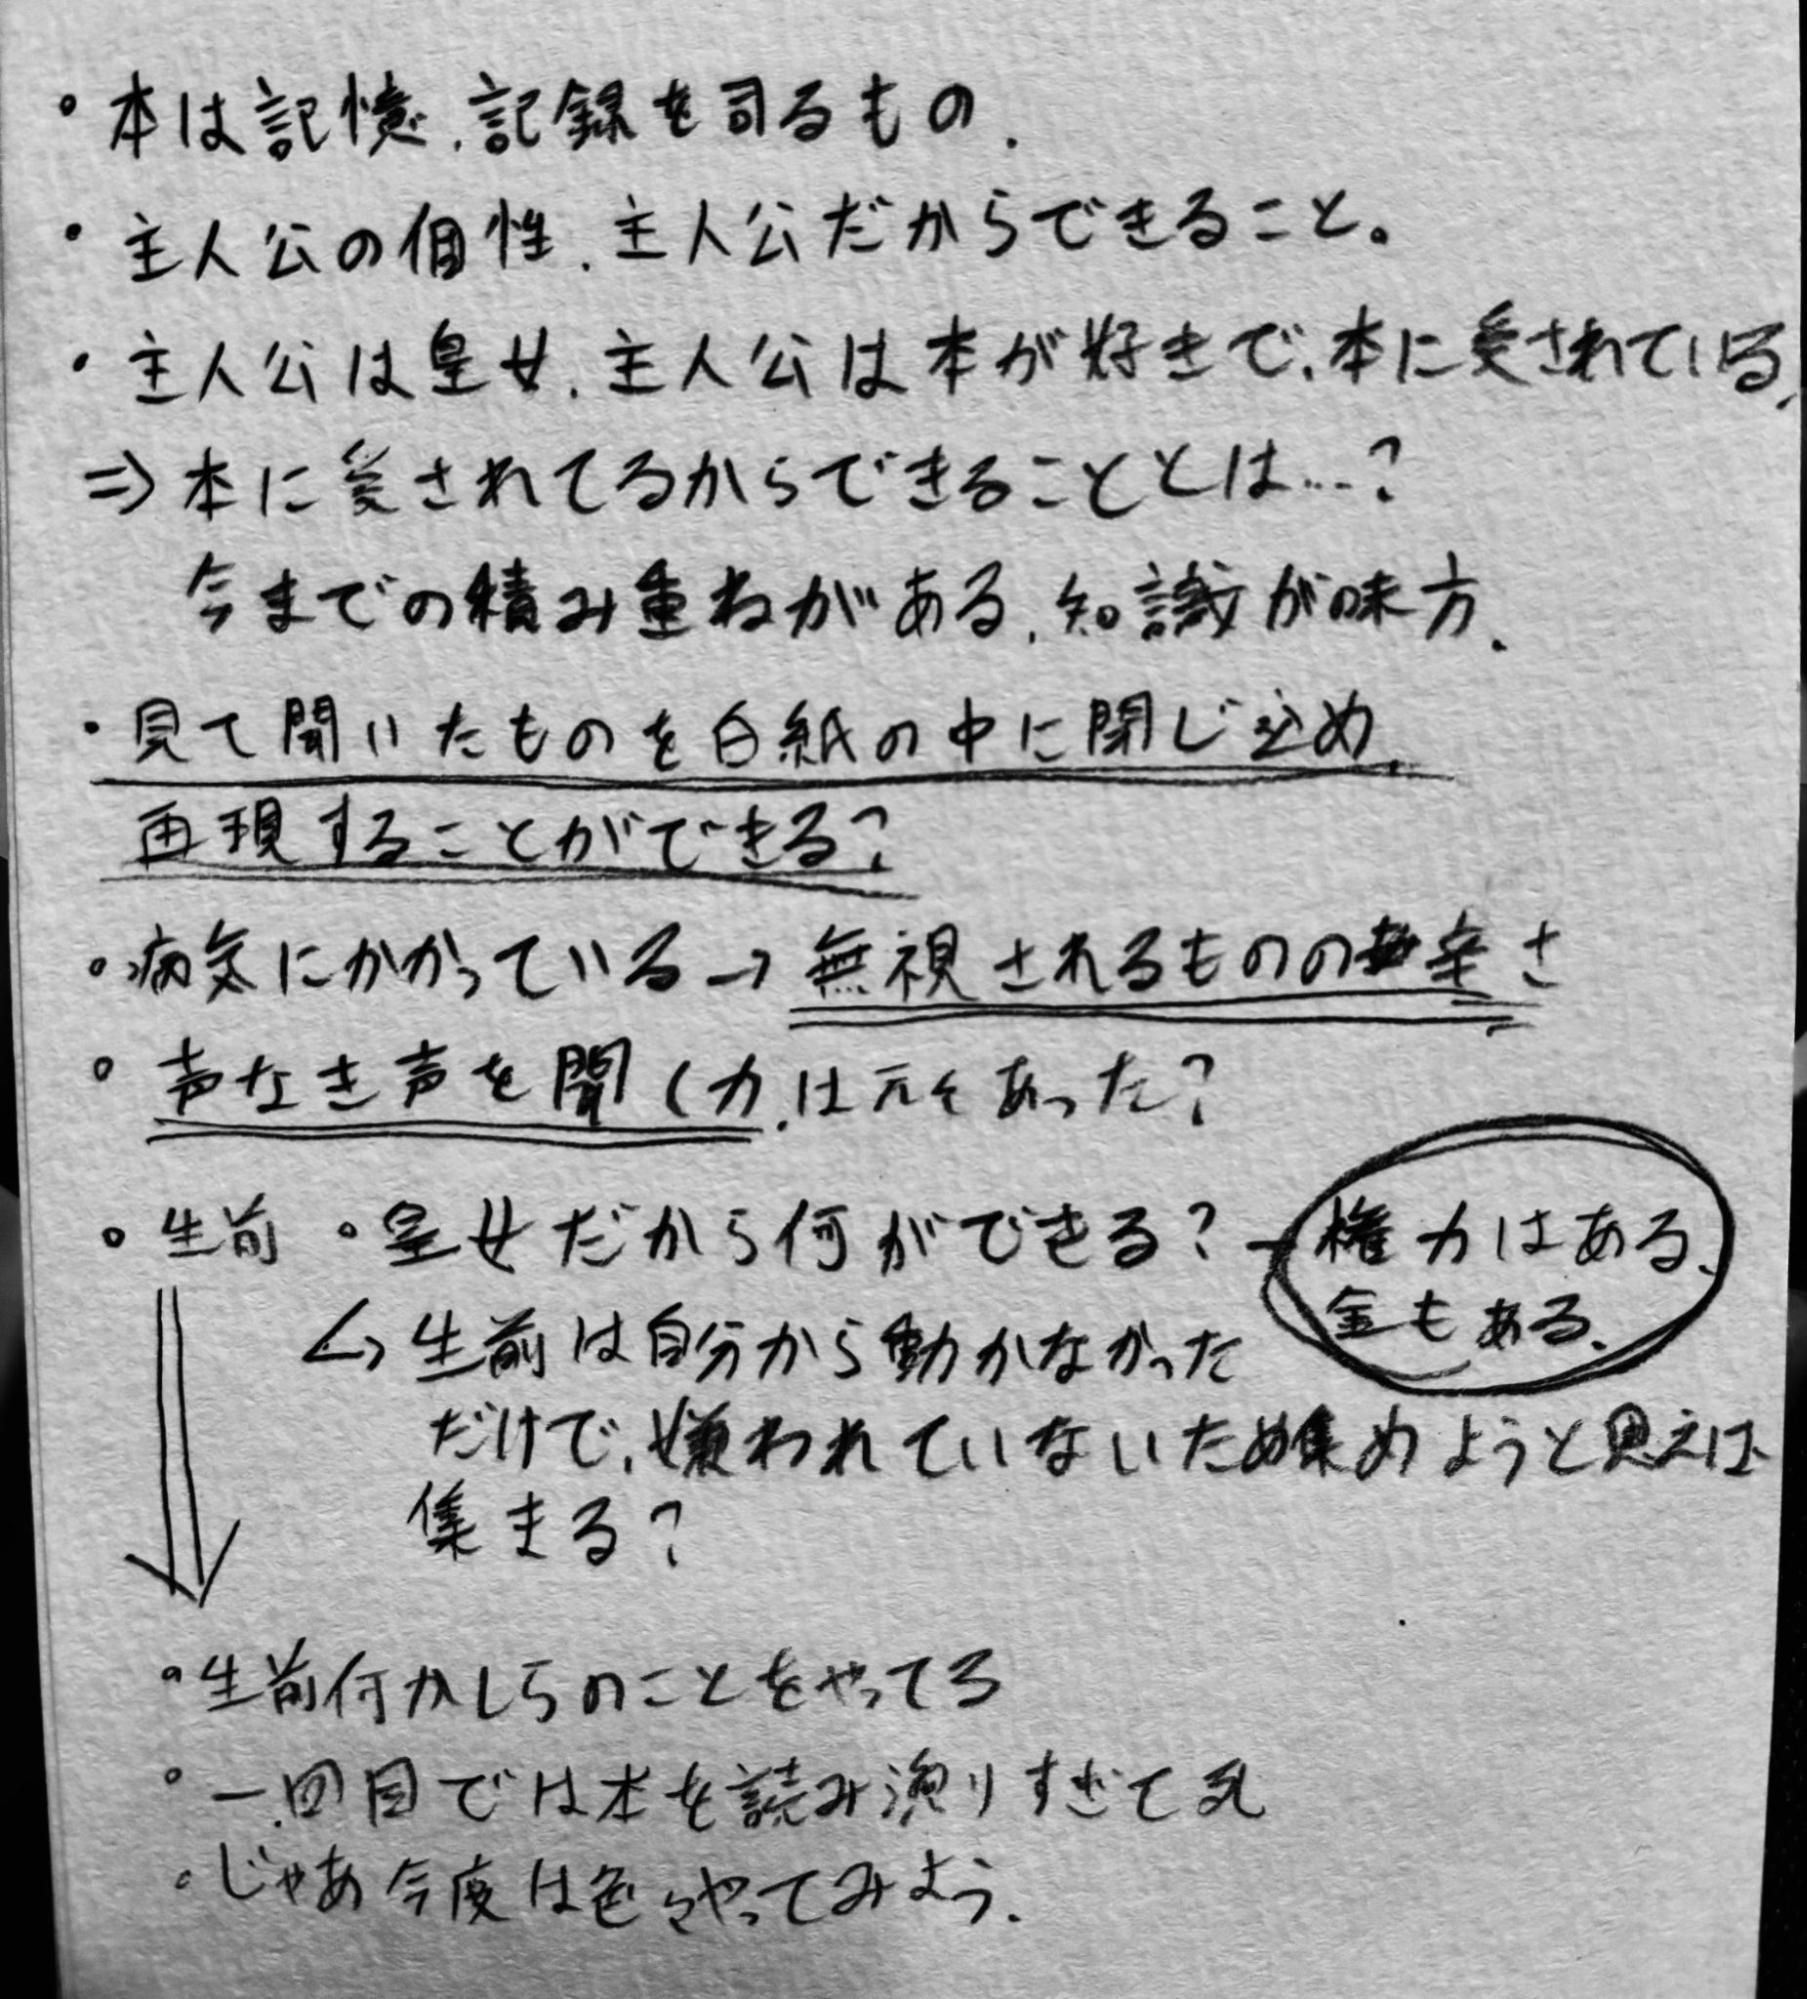 ・本は記憶、記録を司るもの、
・主人公の個性、主人公だからできること。
・主人公は皇女、主人公は本が好きで、本に愛されている、
⇒ 本に愛されてるからできることとは…?
今までの積み重ねがある、知識が味方、
・見て聞いたものを白紙の中に閉じ込め、
再現することができる?
・病気にかかっている → 無視されるものの辛さ
・声なき声を聞く力、は元々あった?
・生前 ・皇女だから何ができる? → 権力はある、
金もある、
↳ 生前は自分から動かなかった
だけで、嫌われていないため集めようと思えば
集まる?
・生前何かしらのことをやってる
・一回目では本を読み漁りすぎて死
・じゃあ今度は色々やってみよう、